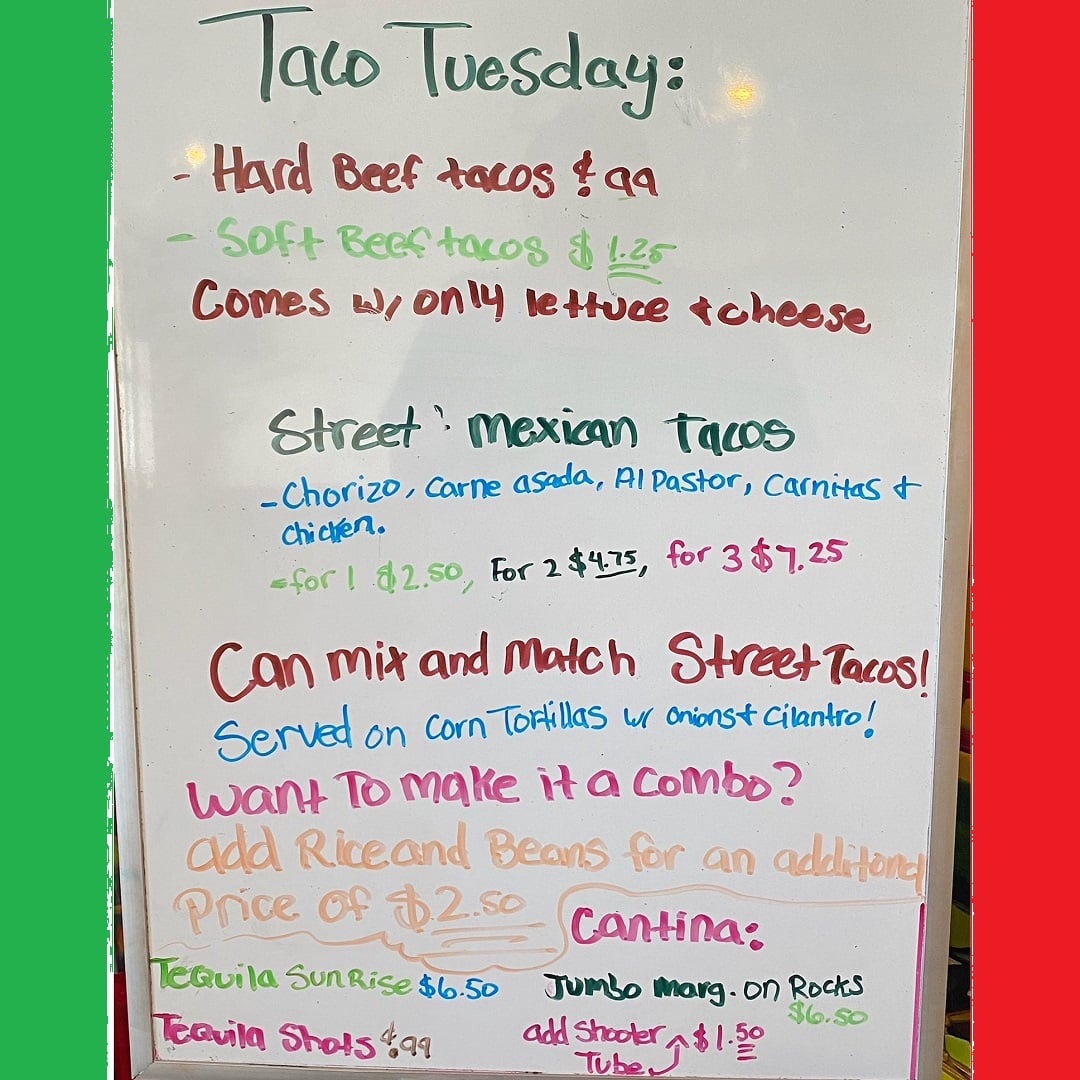 Taco Tuesday:
- Hard Beef tacos $.99
- Soft Beef tacos $1.25
Comes w/ only lettuce & cheese
Street Mexican Tacos
- Chorizo, Carne asada, Al Pastor, Carnitas &
chicken.
- for 1 $2.50, For 2 $4.75, for 3 $7.25
Can mix and Match Street Tacos!
Served on Corn Tortillas w/ onions & Cilantro!
Want To make it a combo?
add Rice and Beans for an additional
Price of $2.50
Cantina:
Tequila SunRise $6.50
Jumbo Marg. on Rocks
$6.50
Tequila Shots $.99
add Shooter $1.50
Tube